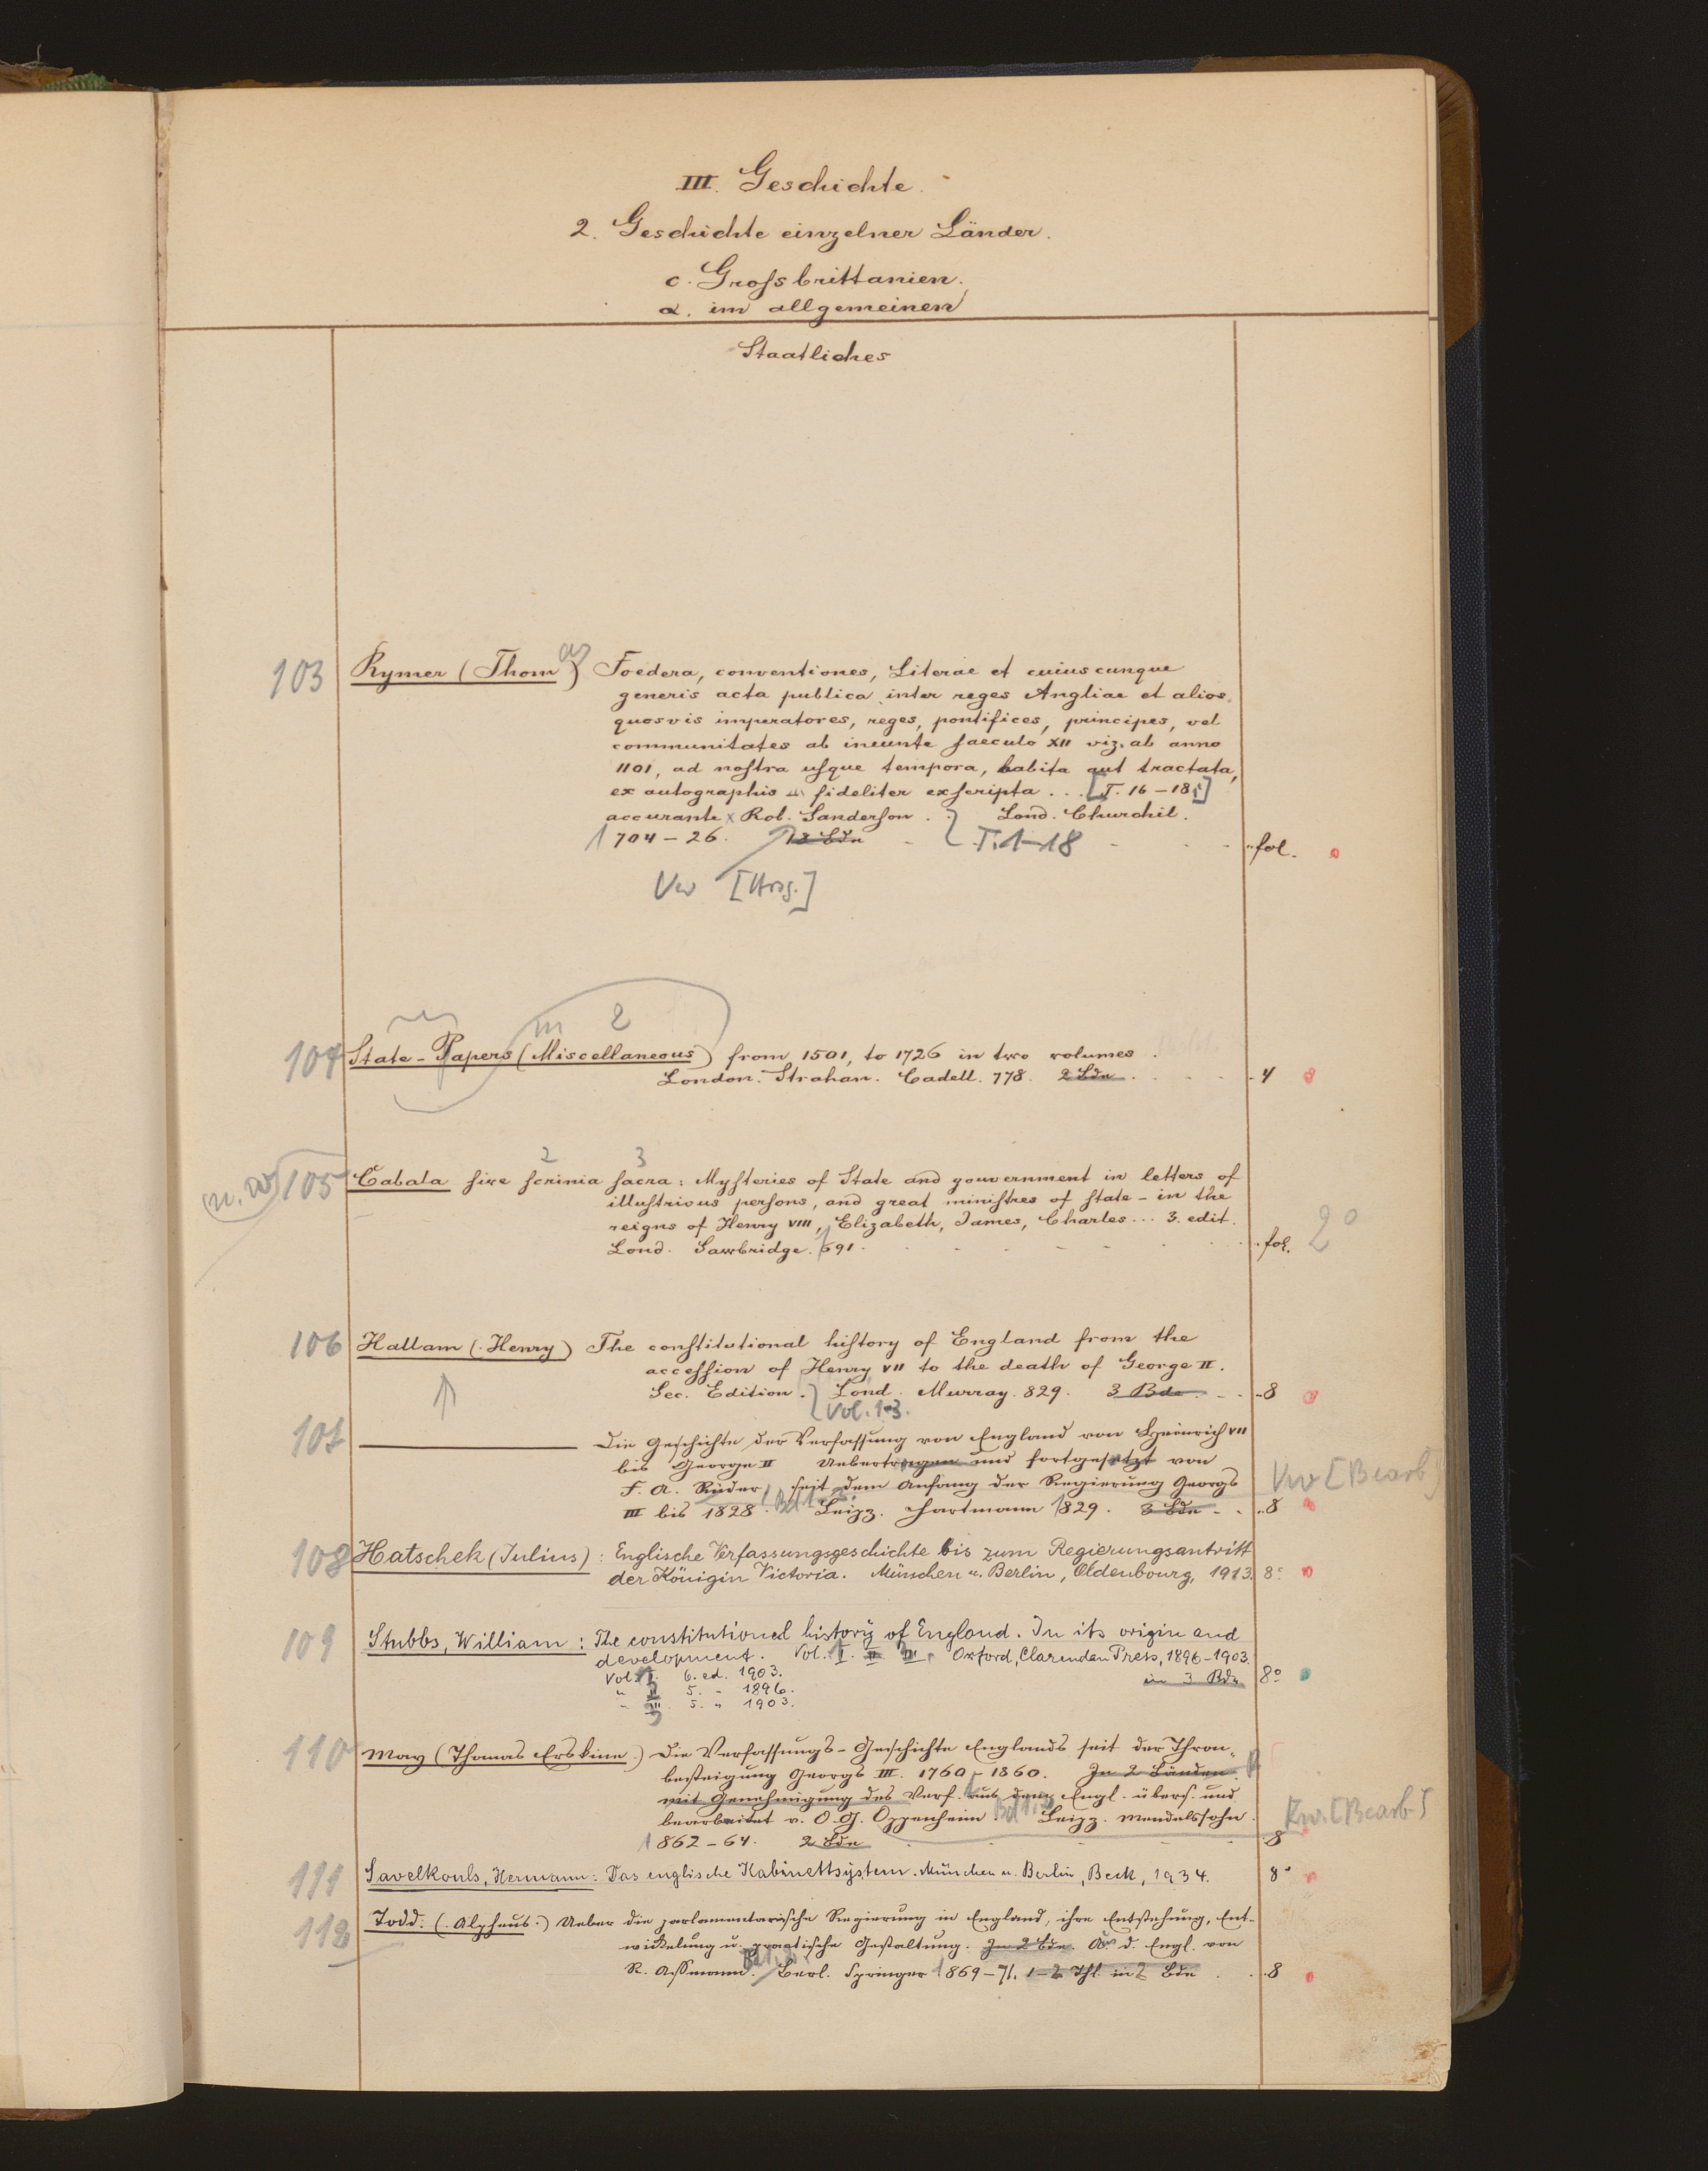 III. Geschichte.
2. Geschichte einzelner Länder.
c. Grossbrittanien.
α. im allgemeinen
Staatliches
103 Rymer (Thomas) Foedera, conventiones, Literae et cuiuscunque
generis acta publica inter reges Angliae et alios
quosvis imperatores, reges, pontifices, principes, vel
communitates ab ineunte saeculo XII viz. ab anno
1101, ad nostra usque tempora, habita aut tractata,
ex autographis fideliter exscripta ... [T. 16-18:]
accurante Rob. Sanderson. Lond. Churchil.
1704-26. T. 1-18 fol.
Vw [Hrsg.]
m 2
104 State-Papers (Miscellaneous) from 1501, to 1726 in two volumes.
London. Strahan. Cadell. 778. 2 Bde 4
2 3
105 Cabala sive scrinia sacra: Mysteries of State and gouvernment in letters of
illustrious persons, and great ministres of state - in the
reigns of Henry VIII, Elizabeth, James, Charles ... 3. edit.
Lond. Sawbridge. 1691. fol. 2°
106 Hallam (Henry) The constitutional history of England from the
accession of Henry VII to the death of George II.
Sec. Edition. Lond. Murray. 829. 3 Bde 8
Vol. 1-3.
107 Die Geschichte der Verfassung von England von Heinrich VII
bis George II Uebertragen und fortgesetzt von
F. A. Rüder, seit dem Anfang der Regierung Georgs Vw [Bearb]
III bis 1828. Leipz. Hartmann 1829. 3 Bde 8
108 Hatschek (Julius): Englische Verfassungsgeschichte bis zum Regierungsantritt
der Königin Victoria. München u. Berlin, Oldenbourg, 1913. 8°
109 Stubbs, William: The constitutional history of England. In its origin and
development. Vol. I. II. III. Oxford, Clarendon Press, 1896-1903.
Vol. I. 6. ed. 1903. in 3 Bdn 8°
" II 5. " 1896.
" III. 5. " 1903.
110 May (Thomas Erskine.) Die Verfassungs-Geschichte Englands seit der Thron-
besteigung Georgs III. 1760-1860. In 2 Bänden.
mit Genehmigung des Verf. aus dem Engl. übers. und
bearbeitet v. O. G. Oppenheim Leipz. Mendelssohn. [Bearb]
1862-64. 2 Bde 8
111 Savelkouls, Hermann: Das englische Kabinettsystem. München u. Berlin, Beck, 1934. 8°
112 Todd. (Alpheus.) Ueber die parlamentarische Regierung in England, ihre Entstehung, Ent-
wickelung u. practische Gestaltung. In 2 Bde. A. d. Engl. von
R. Assmann. Berl. Springer 1869-71. 1-2 Thl. in 2 Bde 8